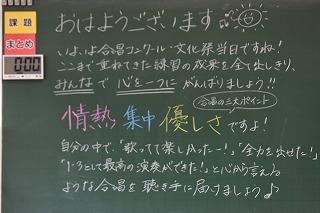 課題
まとめ
おはようございます
いよいよ合唱コンクール・文化祭当日ですね!
ここまで重ねてきた練習の成果を全て出しきり、
みんなで 心を一つに がんばりましょう!!
合唱の三大ポイント
情熱 集中 優しさですよ!
自分の中で、「歌ってて楽しかったー!」「全力を出せた!」
「1-3として最高の演奏ができた!」と心から言える
ような合唱を聴き手に届けましょう♪